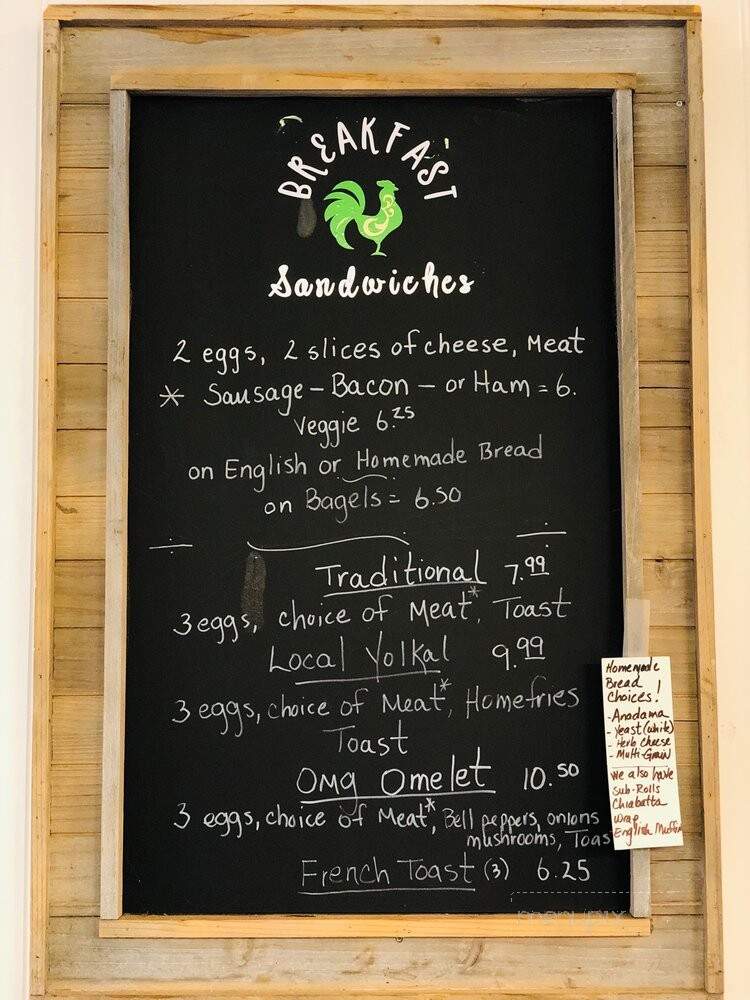 BREAKFAST
Sandwiches
2 eggs, 2 slices of cheese, Meat
* Sausage - Bacon - or Ham = 6.
Veggie 6.25
on English or Homemade Bread
on Bagels = 6.50
Traditional 7.99
3 eggs, choice of Meat*, Toast
Local Yolkal 9.99
3 eggs, choice of Meat*, Homefries
Toast
OMG Omelet 10.50
3 eggs, choice of Meat*, Bell peppers, onions
mushrooms, Toas
French Toast (3) 6.25
Homemade
Bread
Choices!
- Anadama
- Yeast (white)
- Herb Cheese
- Multi-Grain
We also have
Sub-Rolls
Chiabatta
Wrap
English Muffin
menupix